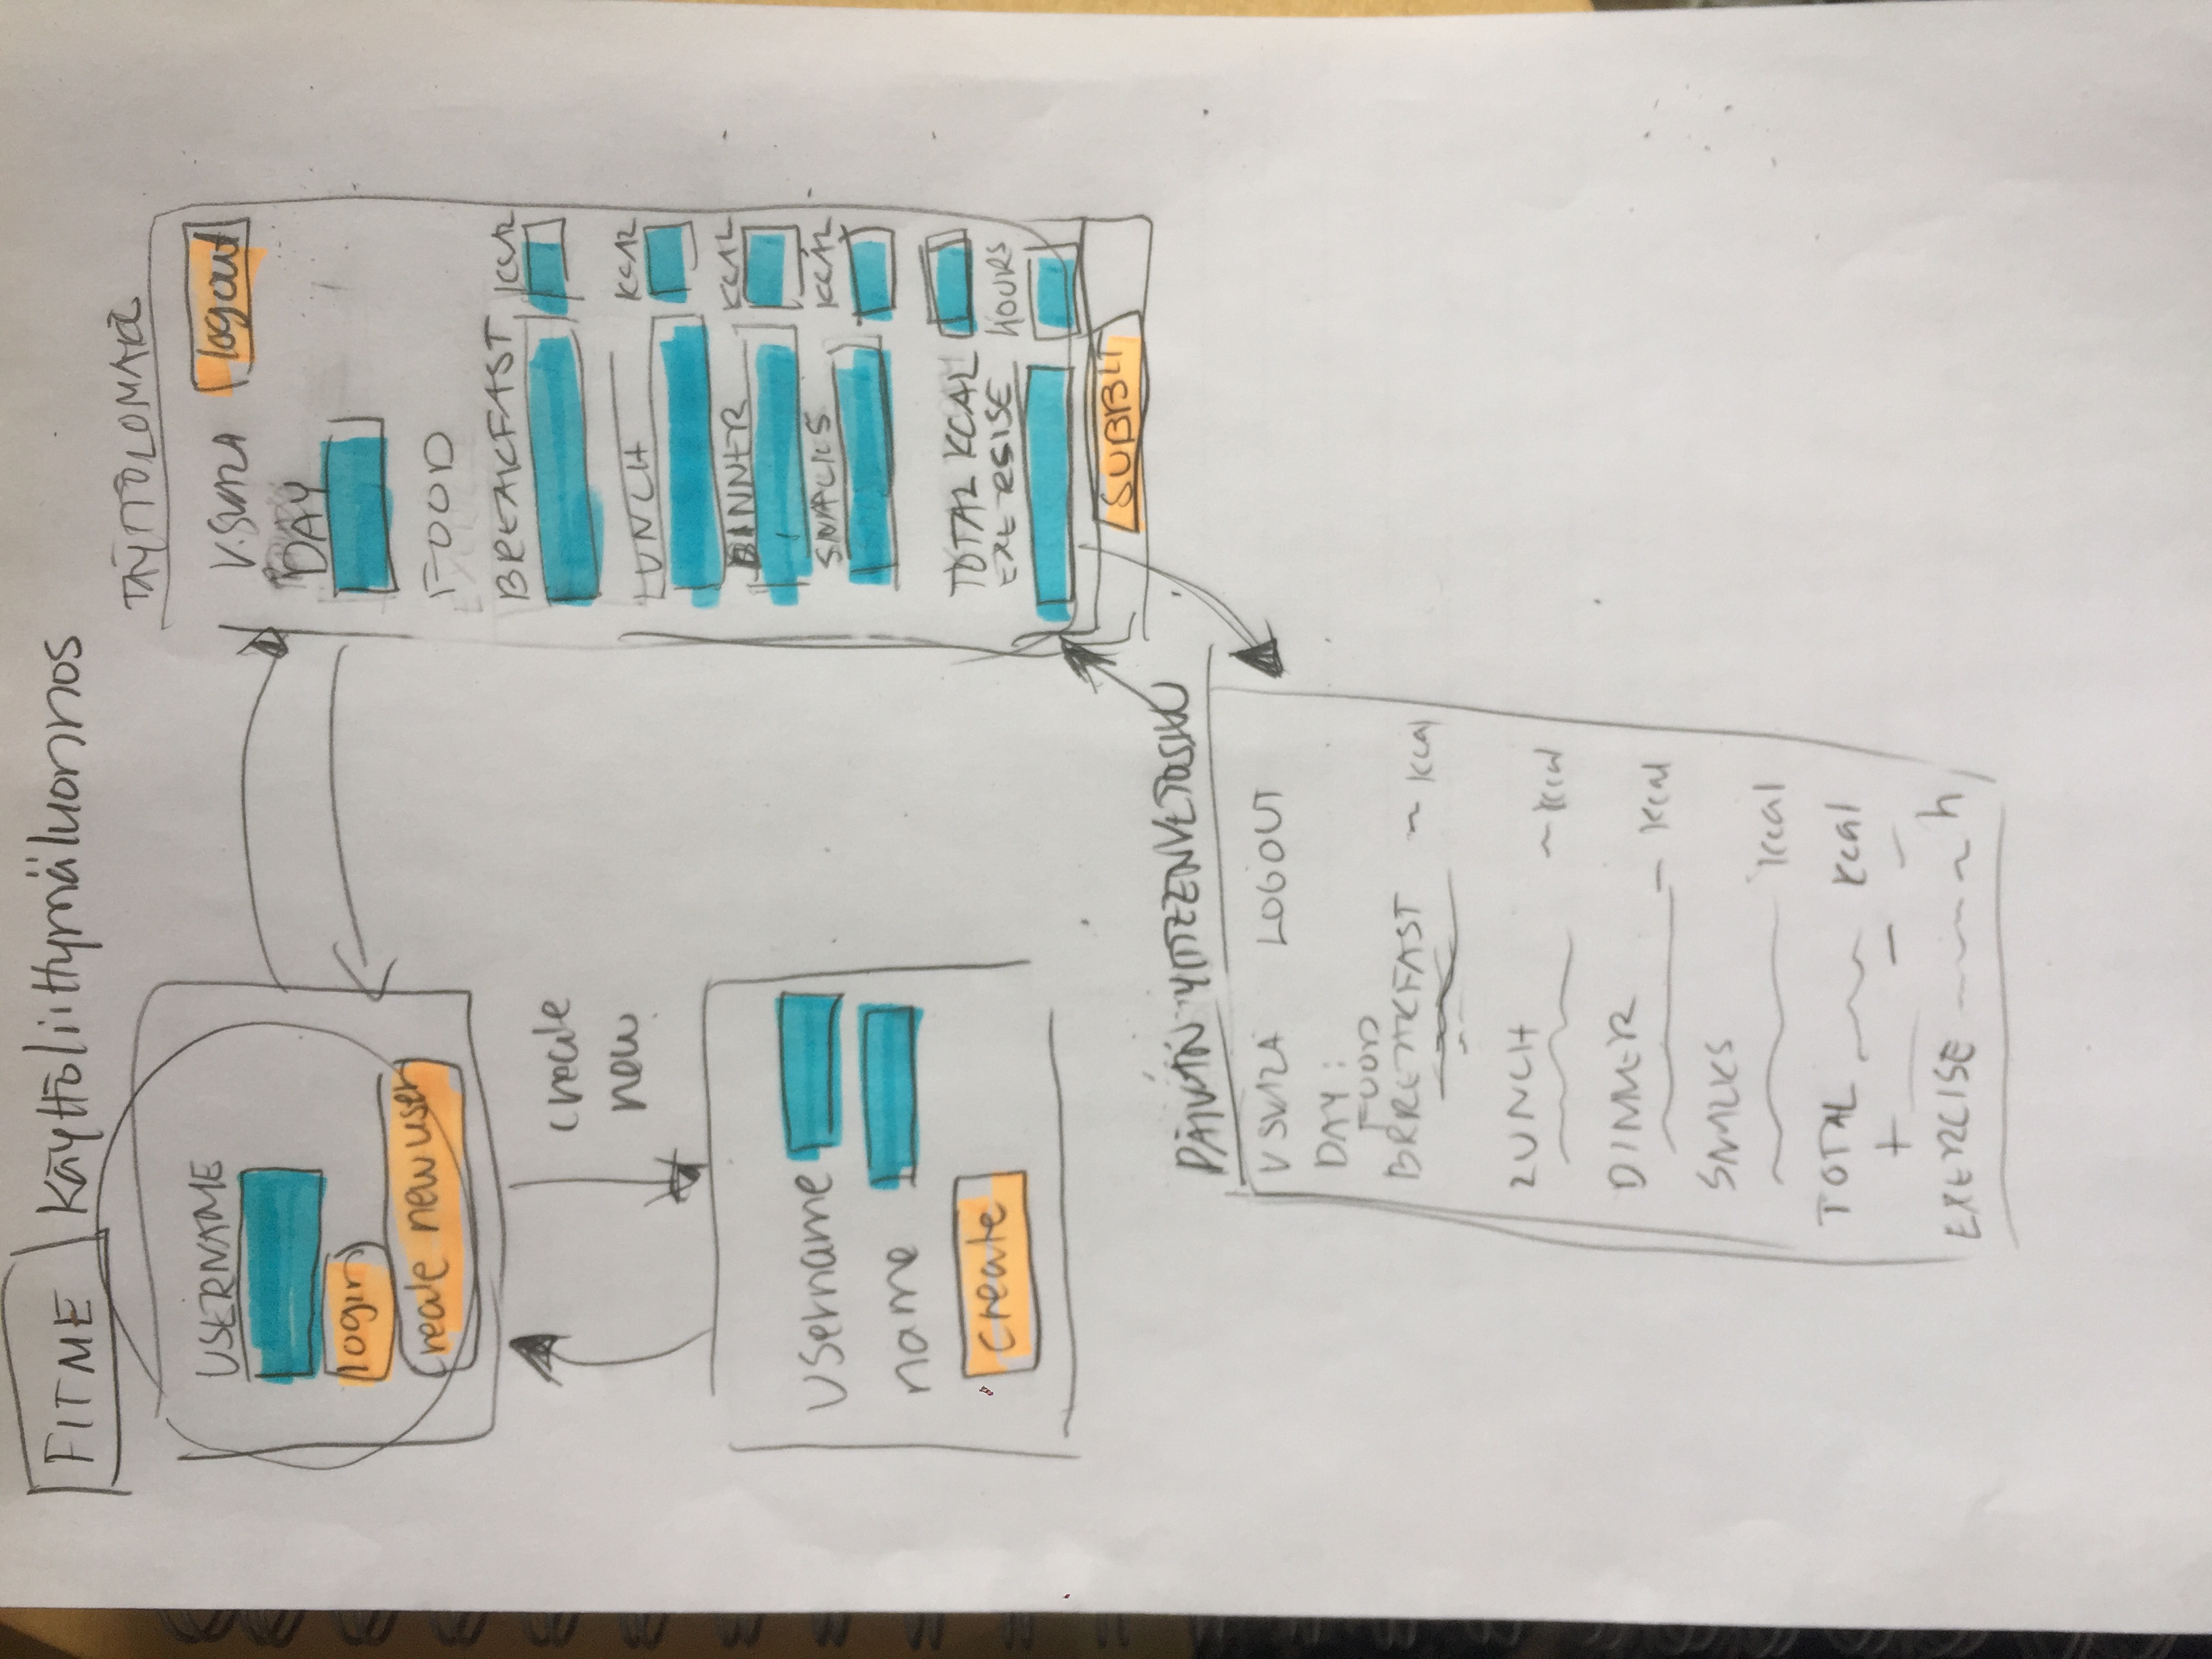 FITME Käyttöliittymäluonnos
USERNAME
login
create new user
create
new
username
name
create
TÄYTTÖLOMAKE
logout
DAY
FOOD
BREAKFAST KCAL
LUNCH KCAL
DINNER KCAL
SNACKS KCAL
TOTAL KCAL
EXERSISE HOURS
SUBBIT
PÄIVÄN YHTEENVETOSIVU
LOGOUT
DAY:
FOOD
BRREAKFAST ~ kcal
LUNCH
~ kcal
DINNER
- kcal
SNACKS
kcal
TOTAL kcal
+ - -
EXERCISE h